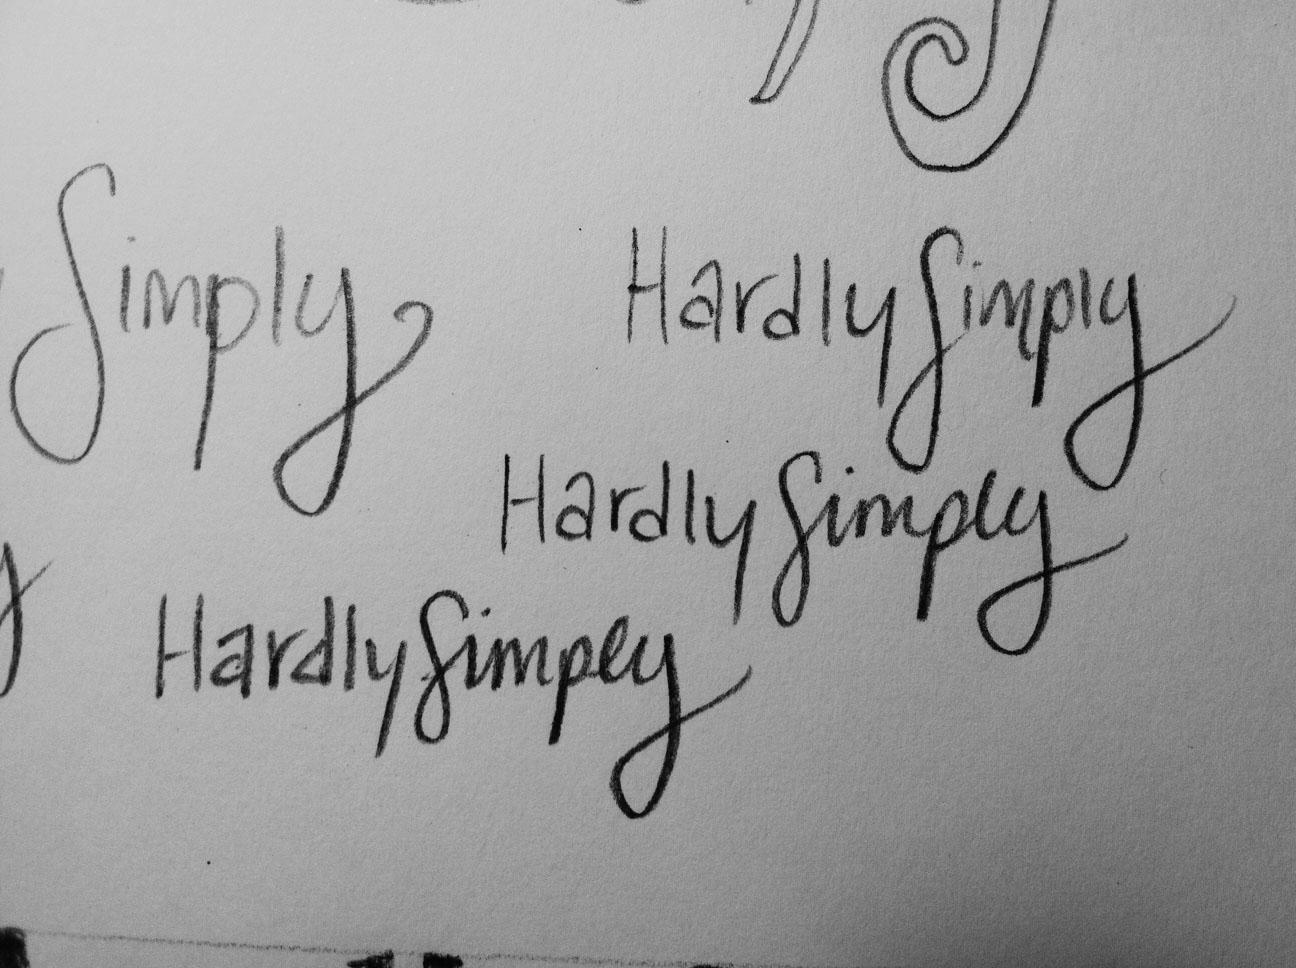 Simply
HardlySimply
HardlySimply
HardlySimply